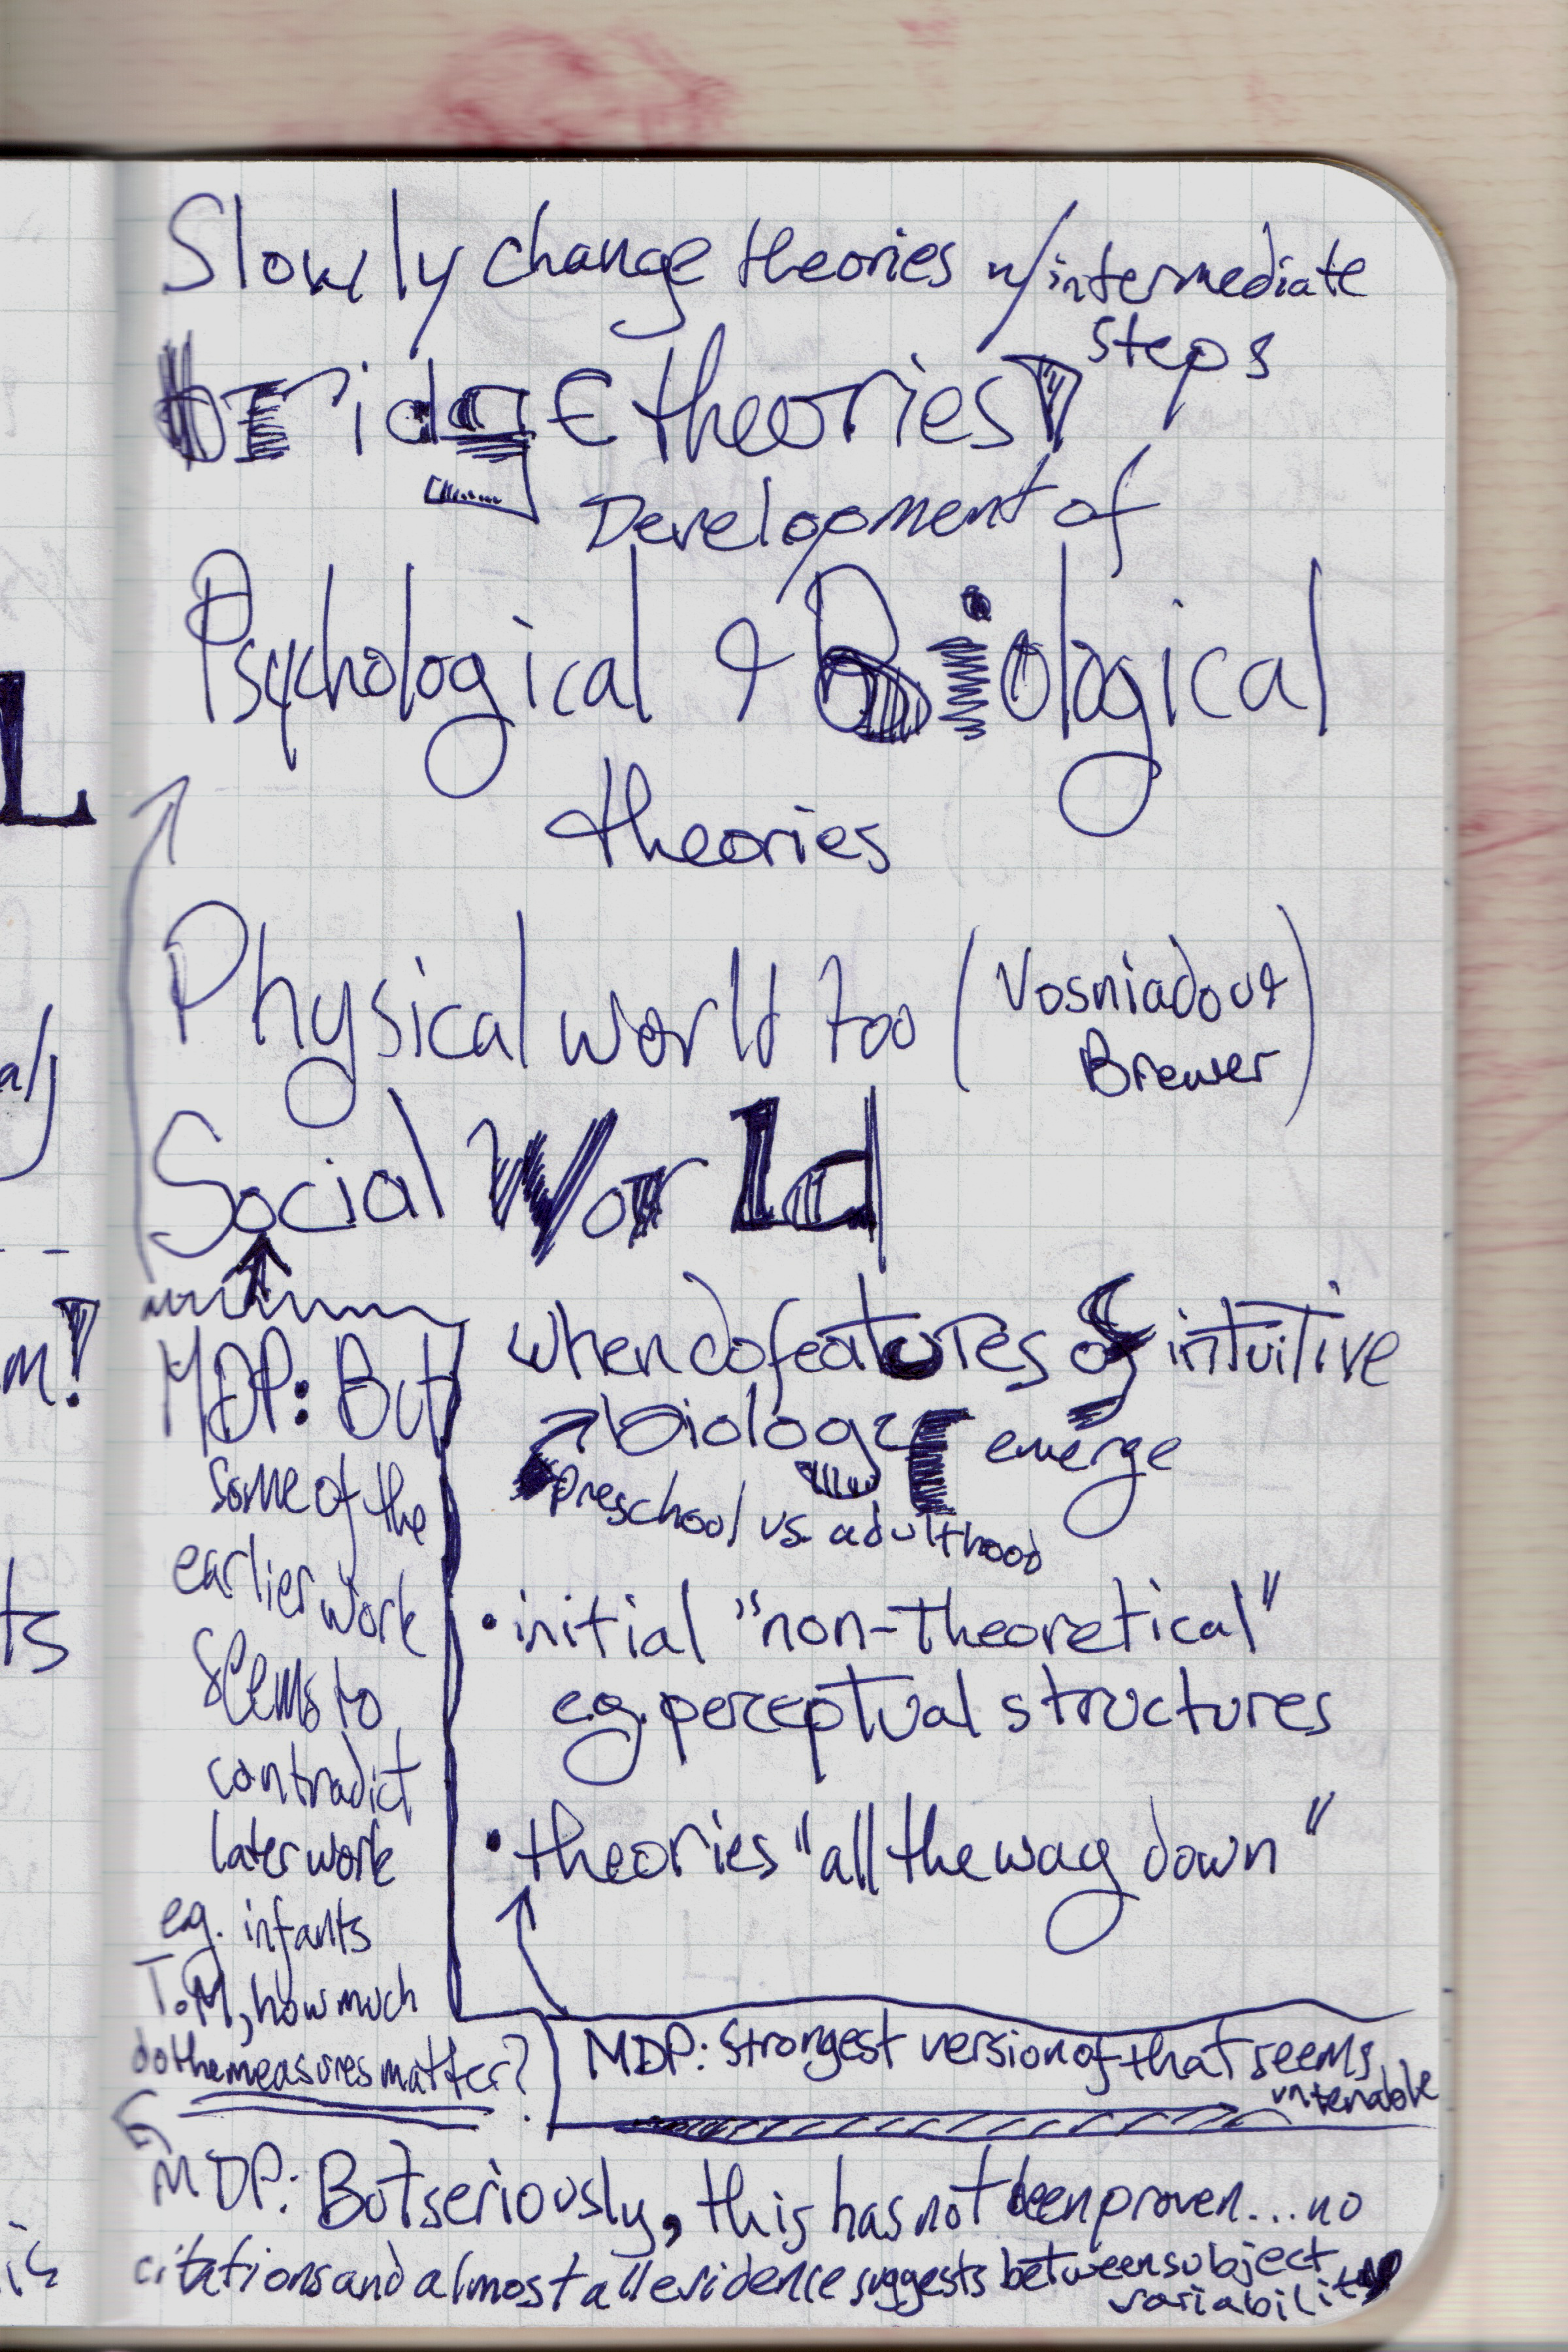 Slowly change theories w/ intermediate
steps
bridgE theories
Development of
Psychological & Biological
theories
Physical world too (Vosniadou &
Brewer)
Social World
MDP: But
some of the
earlier work
seems to
contradict
later work
e.g. infants
T.M, how much
do the measures matter?
when do features of intuitive
biology emerge
preschool vs. adulthood
• initial "non-theoretical"
e.g. perceptual structures
• theories "all the way down"
MDP: Strongest version of that seems
untenable
MDP: But seriously, this has not been proven... no
citations and almost all evidence suggests between subject
variability
L
al)
m!
ts